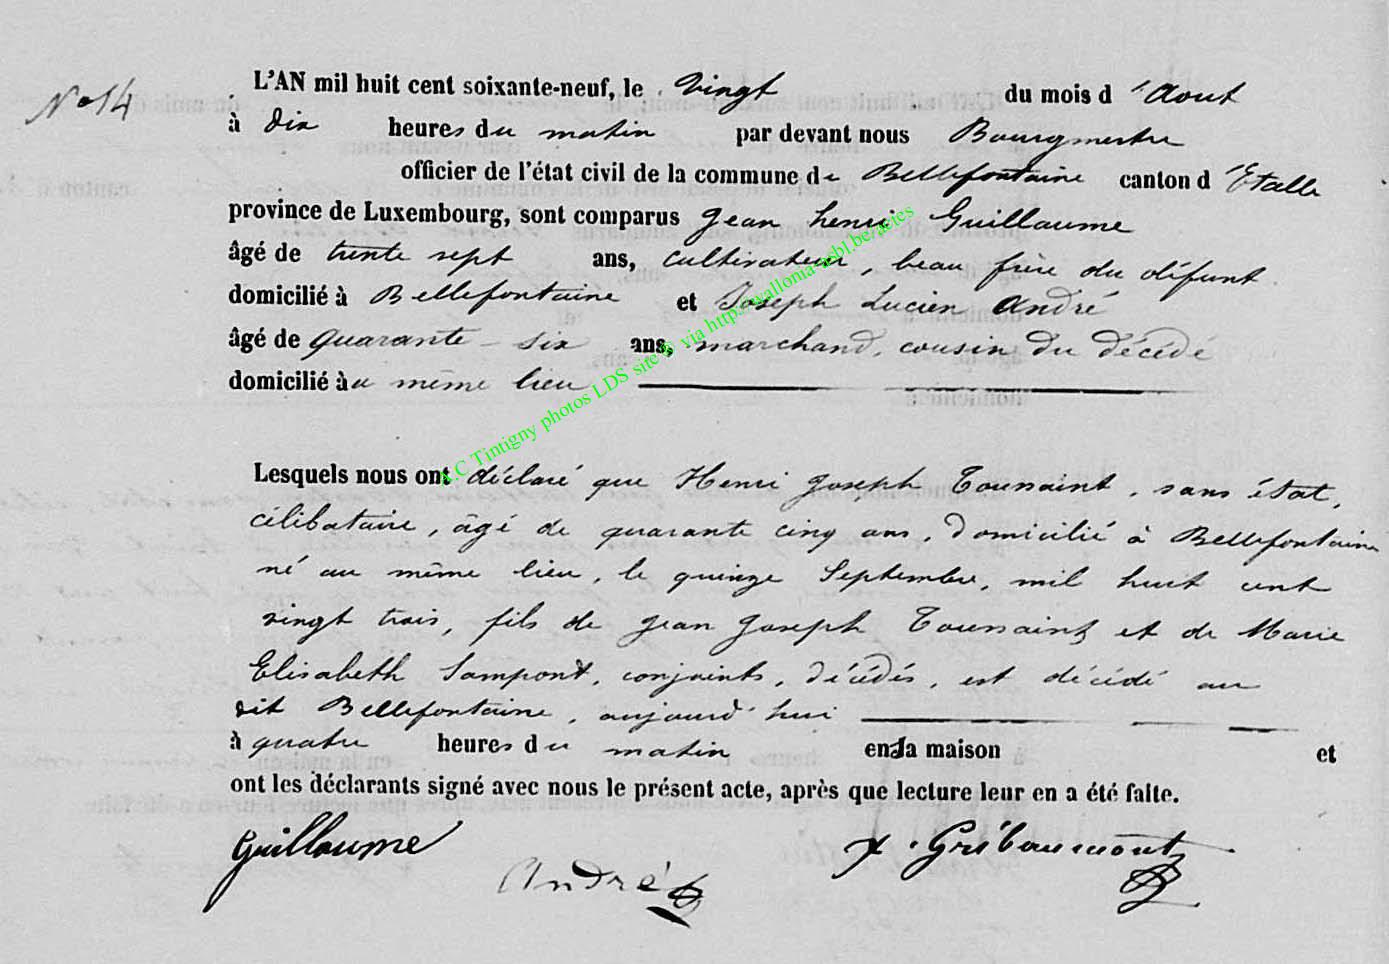 N° 14
L'AN mil huit cent soixante-neuf, le vingt du mois d'Aout
à dix heures du matin par devant nous Bourgmestre
officier de l'état civil de la commune de Bellefontaine canton d'Etalle
province de Luxembourg, sont comparus Jean henri Guillaume
âgé de trente sept ans, cultivateur, beau frère du défunt
domicilié à Bellefontaine et Joseph Lucien André
âgé de quarante-six ans, marchand, cousin du décédé
domicilié au même lieu
Lesquels nous ont déclaré que Henri Joseph Toussaint, sans état,
célibataire, âgé de quarante cinq ans, domicilié à Bellefontaine
né au même lieu, le quinze Septembre, mil huit cent
vingt trois, fils de Jean Joseph Toussaint et de Marie
Elisabeth Sampont, conjoints, décédés, est décédé au
dit Bellefontaine, aujourd'hui
à quatre heures du matin en la maison et
ont les déclarants signé avec nous le présent acte, après que lecture leur en a été faite.
Guillaume
André
Gribaumont
A.C Tintigny photos LDS site © via http://wallonia-asbl.be/actes